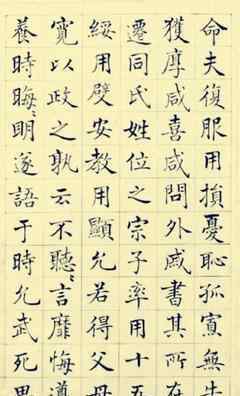 命夫復服用損憂恥孤寡無
獲厚咸喜咸問外戚書其所在
遷同氏姓位之宗子率用十五
綏用安教用顯允若得父母
寬以政之孰云不聽〻言靡悔遵
養時晦〻明遂語于時允武死